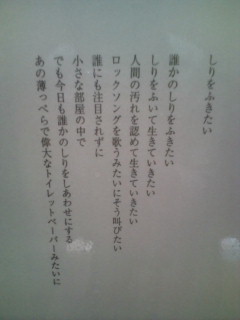 しりをふきたい
誰かのしりをふきたい
しりをふいて生きていきたい
人間の汚れを認めて生きていきたい
ロックソングを歌うみたいにそう叫びたい
誰にも注目されずに
小さな部屋の中で
でも今日も誰かのしりをしあわせにする
あの薄っぺらで偉大なトイレットペーパーみたいに